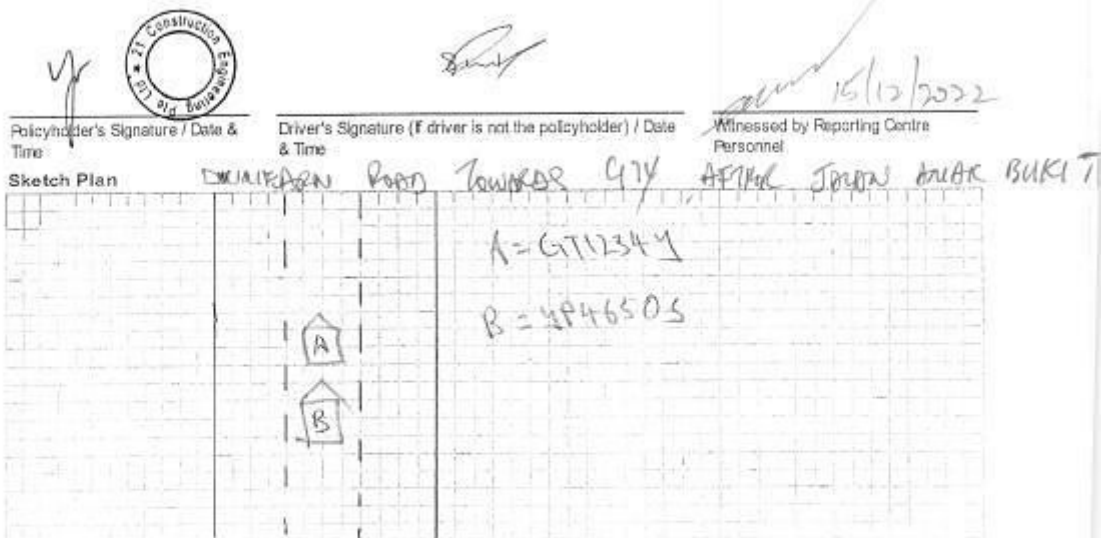 21 Construction Engineering Pte Ltd *
15/12/2022
Policyholder's Signature / Date & Time
Driver's Signature (If driver is not the policyholder) / Date & Time
Witnessed by Reporting Centre Personnel
Sketch Plan
ROAD TOWARDS CITY AFTER JALAN ANAK BUKIT
A = GT1234Y
B = YP4650S
A
B